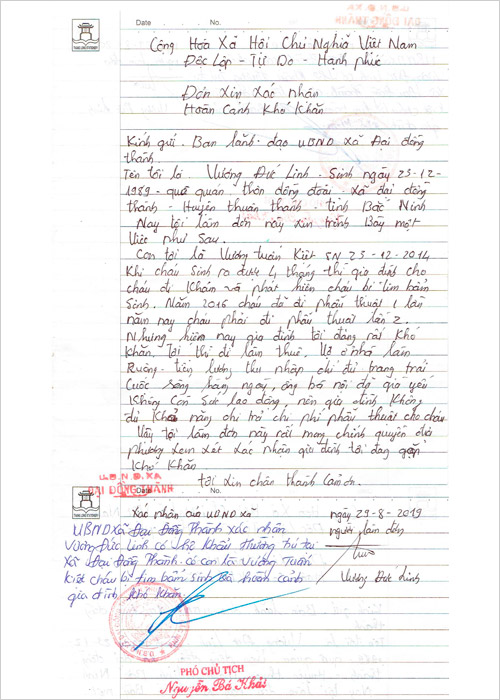 Date No.
U.B.N.D.XÃ
ĐẠI ĐỒNG THÀNH
Cộng Hòa Xã Hội Chủ Nghĩa Việt Nam
Độc Lập - Tự Do - Hạnh phúc
Đơn Xin Xác nhận
Hoàn Cảnh Khó Khăn
Kính gửi. Ban lãnh đạo UBND Xã Đại đồng
thành.
Tên tôi là. Vương Đức Linh - Sinh ngày 23-12-
1989 - quê quán - thôn đồng đoài - xã đại đồng
thành - Huyện thuận thành - tỉnh Bắc Ninh
Nay tôi làm đơn này xin trình Bày một
Việc như Sau.
Con tôi là Vương tuấn Kiệt SN 25-12-2014
Khi cháu Sinh ra được 4 tháng thì gia đình cho
cháu đi Khám và phát hiện cháu bị tim bẩm
Sinh. Năm 2016 cháu đã đi phẫu thuật 1 lần
năm nay cháu phải đi phẫu thuật lần 2.
Nhưng hiện nay gia đình tôi đang rất Khó
Khăn. Tôi thì đi làm thuê. Vợ ở nhà làm
Ruộng - tiền lương thu nhập chỉ đủ trang trải
Cuộc Sống hàng ngày, ông bà nội đã già yếu
Không Còn Sức lao động, nên gia đình Không
đủ Khả năng chi trả chi phí phẫu thuật cho cháu
Vậy tôi làm đơn này rất mong chính quyền địa
phương xem xét xác nhận gia đình tôi đang gặp
Khó Khăn
tôi xin chân thành Cảm ơn.
U.B.N.D.XÃ
ĐẠI ĐỒNG THÀNH
Xác nhận của UBND xã
ngày 29-8-2019
người làm đơn
UBND xã Đại Đồng Thành xác nhận
Vương Đức Linh có hộ Khẩu thường trú tại
xã Đại Đồng Thành có con là Vương Tuấn
Kiệt cháu bị tim bẩm sinh hoàn cảnh
gia đình Khó Khăn
Vương Đức Linh
PHÓ CHỦ TỊCH
Nguyễn Bá Khải